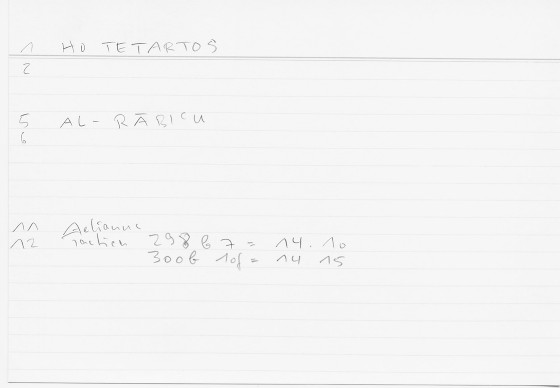 1 HO TETARTOS
2
5 AL-RĀBIʿU
6
11 Aelianus
12 Tactica 298 b 7 = 14.10
300b 10f = 14 15